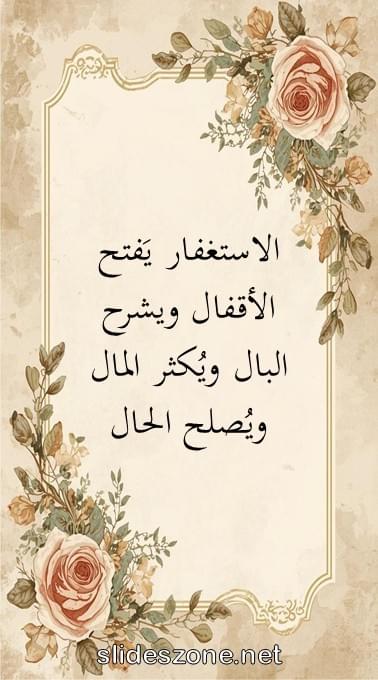 الاستغفار يَفتح
الأقفال ويشرح
البال ويُكثر المال
ويُصلح الحال
slideszone.net